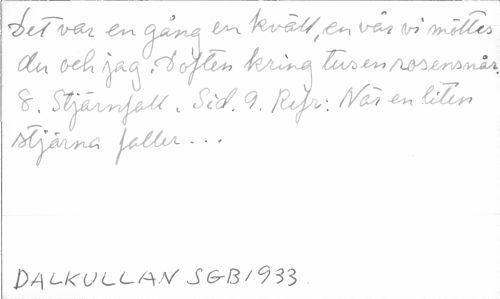 Det var en gång en kväll, en vår vi möttes
du och jag. Doften kring tusen rosensnår.
8. Stjärnfall. Sid. 9. Refr: När en liten
stjärna faller...
DALKULLAN SGB1933